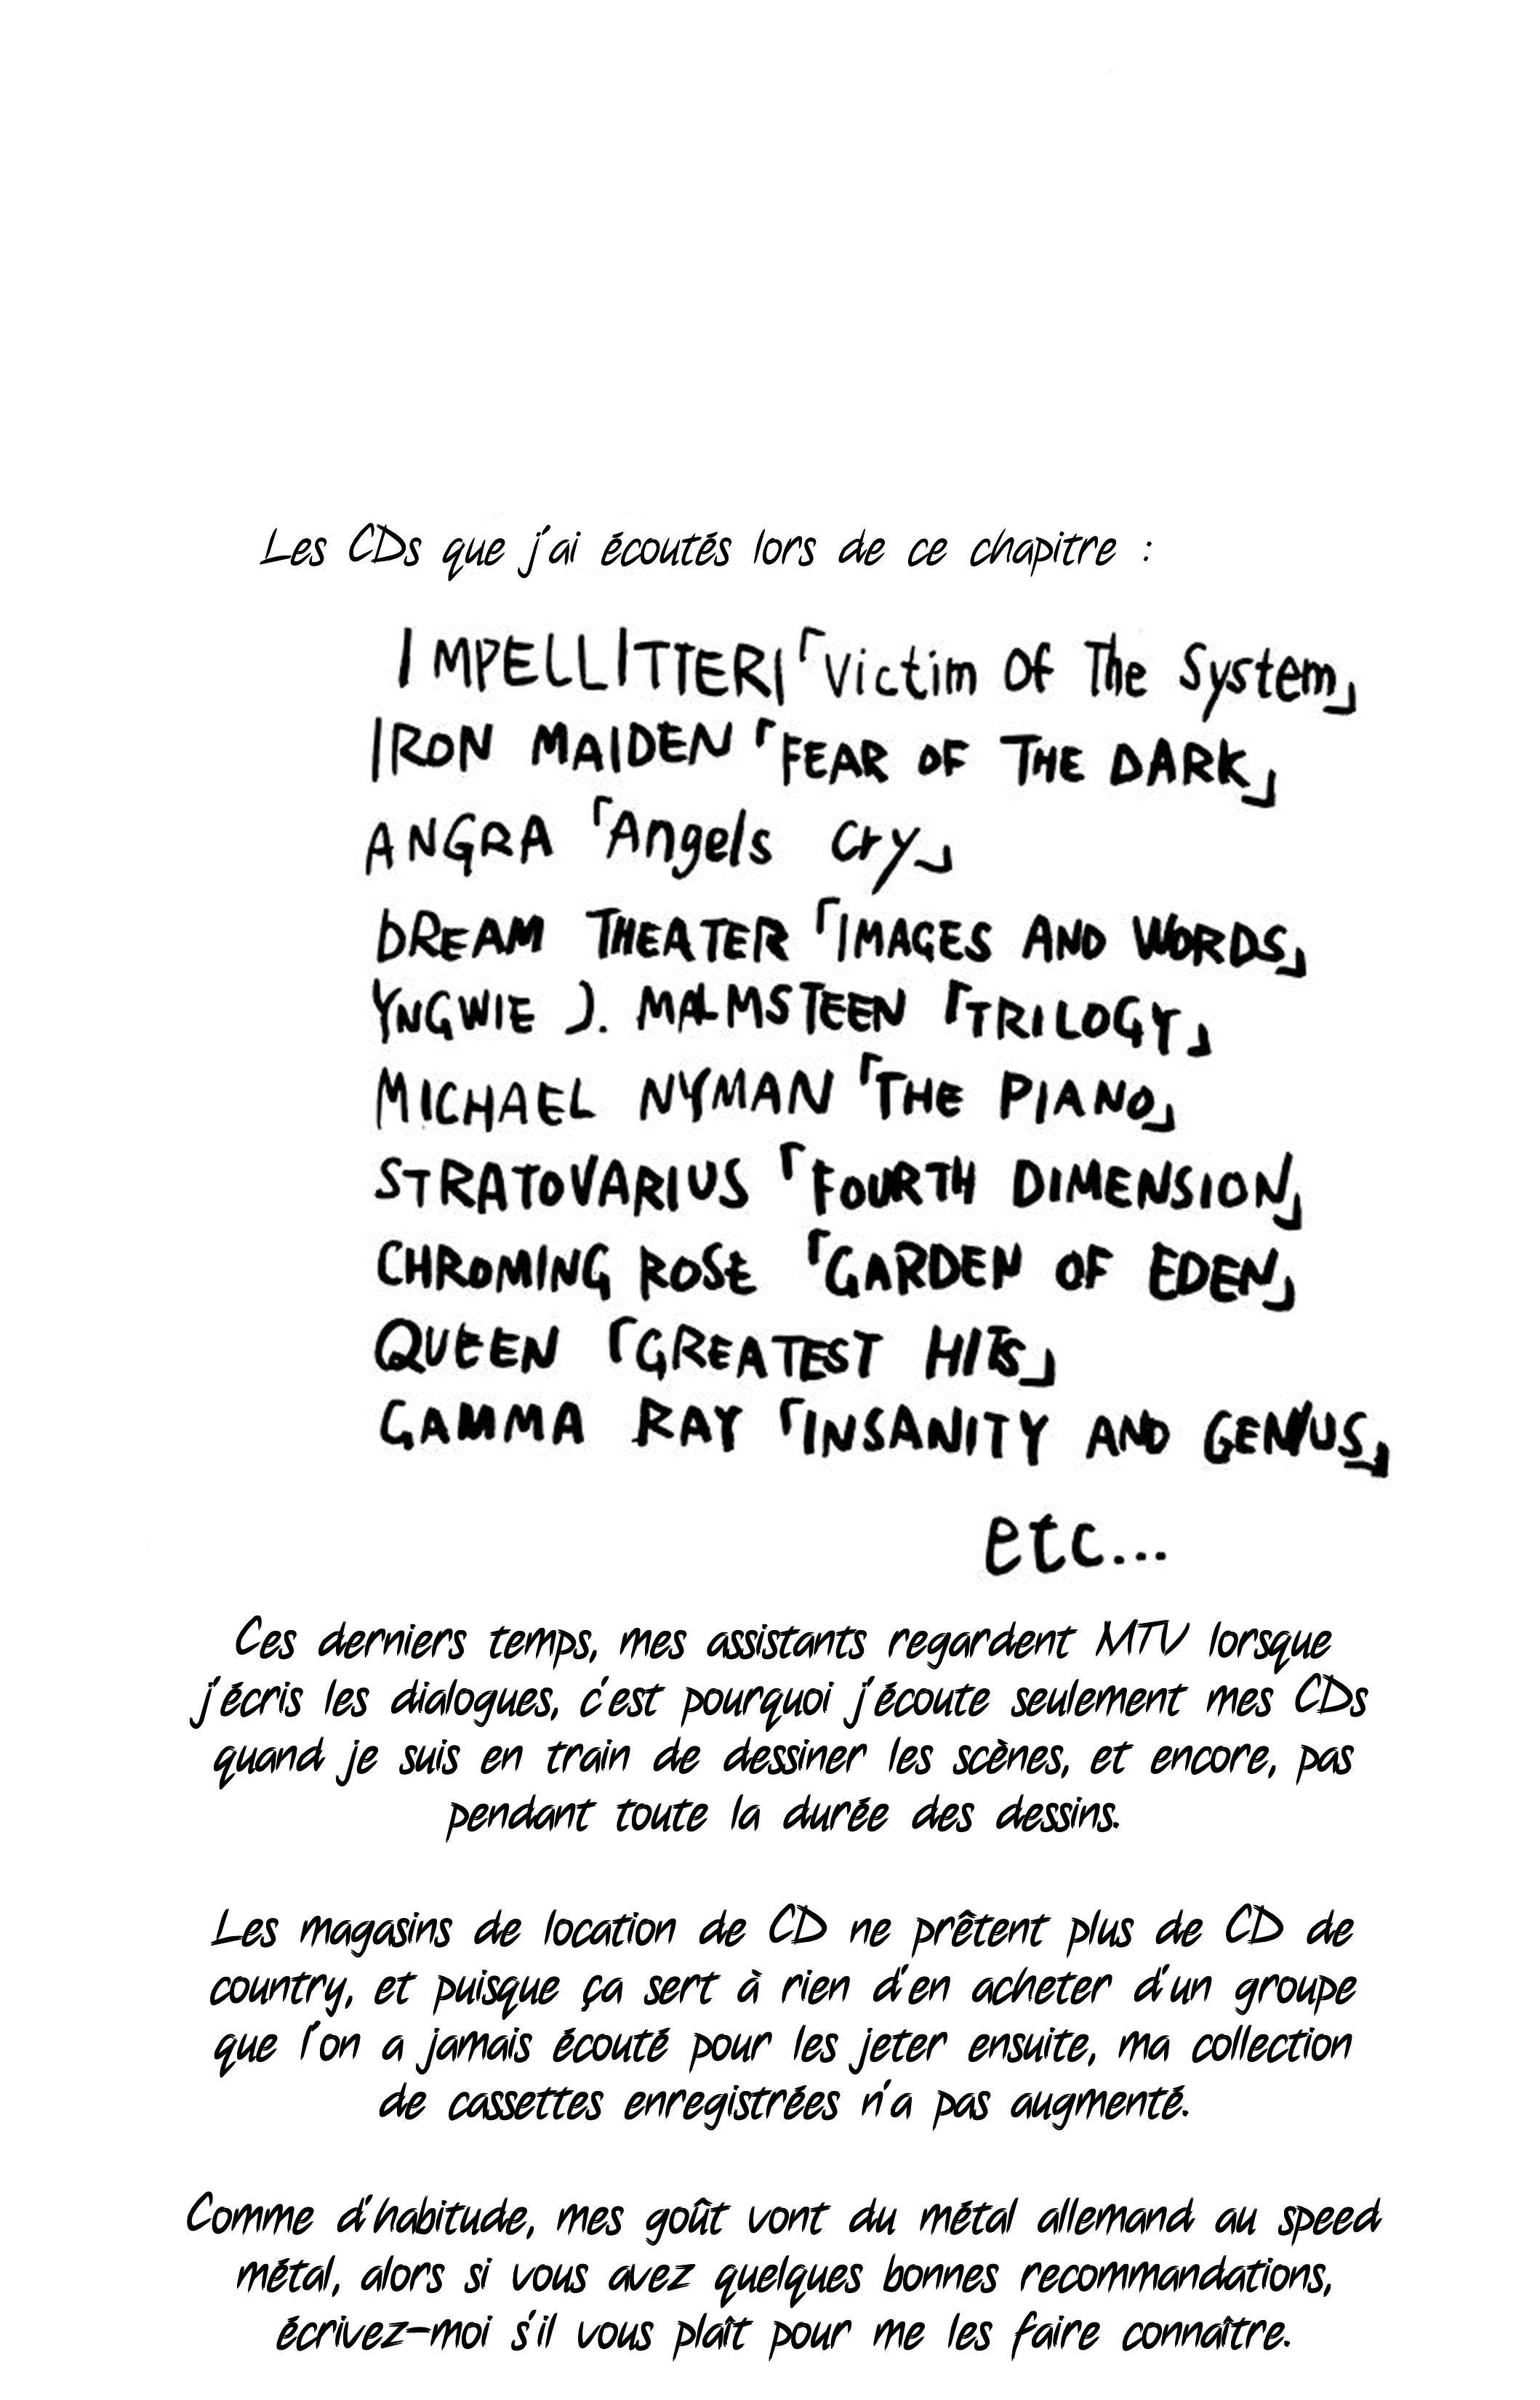 Les CDs que j'ai écoutés lors de ce chapitre :
IMPELLITTERI「Victim Of The System」
IRON MAIDEN「FEAR OF THE DARK」
ANGRA「Angels Cry」
DREAM THEATER「IMAGES AND WORDS」
YNGWIE J. MALMSTEEN「TRILOGY」
MICHAEL NYMAN「THE PIANO」
STRATOVARIUS「FOURTH DIMENSION」
CHROMING ROSE「GARDEN OF EDEN」
QUEEN「GREATEST HITS」
GAMMA RAY「INSANITY AND GENIUS」
etc...
Ces derniers temps, mes assistants regardent MTV lorsque
j'écris les dialogues, c'est pourquoi j'écoute seulement mes CDs
quand je suis en train de dessiner les scènes, et encore, pas
pendant toute la durée des dessins.
Les magasins de location de CD ne prêtent plus de CD de
country, et puisque ça sert à rien d'en acheter d'un groupe
que l'on a jamais écouté pour les jeter ensuite, ma collection
de cassettes enregistrées n'a pas augmenté.
Comme d'habitude, mes goût vont du métal allemand au speed
métal, alors si vous avez quelques bonnes recommandations,
écrivez-moi s'il vous plaît pour me les faire connaître.